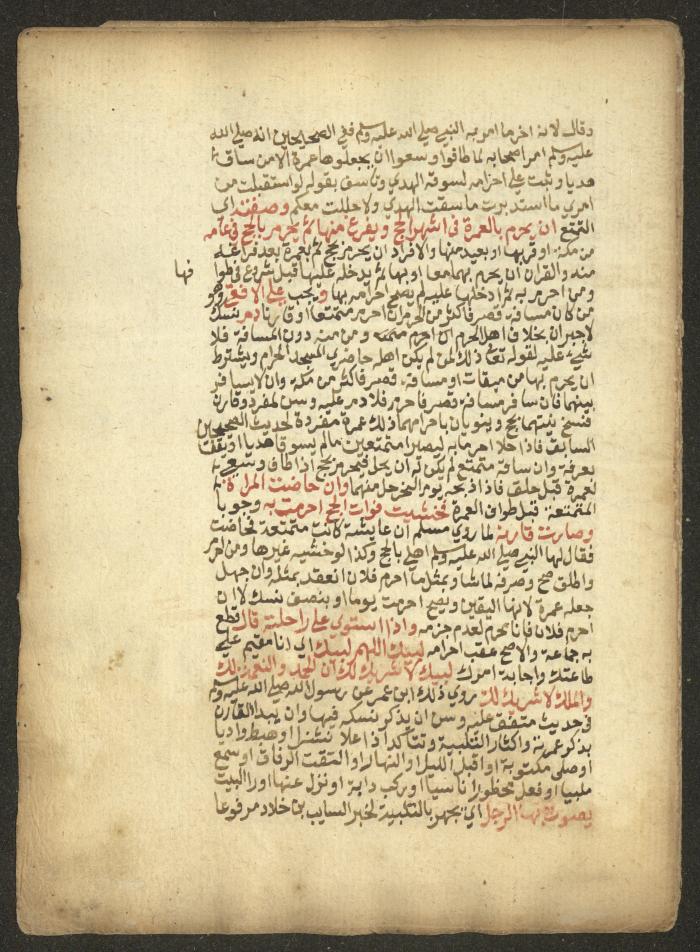 وقال لانه اخر ما امر به النبي صلى الله عليه وسلم ففي الصحيحين انه صلى الله
عليه وسلم امر اصحابه لما طافوا وسعوا ان يجعلوها عمرة الا من ساق
هديا وثبت على احرامه لسوقه الهدي وتاسف بقوله لو استقبلت من
امري ما استدبرت ما سقت الهدي ولاحللت معكم وصفته اي
التمتع ان يحرم بالعمرة في اشهر الحج ويفرغ منها ثم يحرم بالحج في عامه
من مكة او قربها او بعيد منها والافراد ان يحرم بحج ثم بعمرة بعد فراغه
منه والقران ان يحرم بهما معا او بها ثم يدخله عليها قبل شروع في طوا
فها
ومن احرم به ثم ادخلها عليه لم يصح احرامه بها ويجب على الافقي وهو
من كان مسافة قصر فاكثر من الحرم ان احرم متمتعا او قارنا دم نسك
لا جبران بخلاف اهل الحرم ومن منه دون المسافة فلا
شيء عليه لقوله تعالى ذلك لمن لم يكن اهله حاضري المسجد الحرام ويشترط
ان يحرم بها من ميقات او مسافة قصر فاكثر من مكة وان لا يسافر
بينهما فان سافر مسافة قصر فاحرم فلا دم عليه وسن لمفرد وقارن
فسخ نيتهما بحج وينويان باحرامهما ذلك عمرة مفردة لحديث الصحيحين
السابق فاذا حلا احرما به ليصيرا متمتعين ما لم يسوقا هديا او يقفا
بعرفة وان ساقه متمتع لم يكن له ان يحل فيحرم بحج اذا طاف وسعى
لعمرة قبل حلق فاذا ذبحه يوم النحر حل منهما وان حاضت المراة
المتمتعة قبل طواف العمرة فخشيت فوات الحج احرمت به وجوبا
وصارت قارنة لما روى مسلم ان عايشة كانت متمتعة فحاضت
فقال لها النبي صلى الله عليه وسلم اهلي بالحج وكذا لو خشيه غيرها ومن احرم
واطلق صح وصرفه لما شا وبمثل ما احرم فلان انعقد بمثله وان جهل
جعله عمرة لانها اليقين ويصح احرمت يوما او بنصف نسك لا ان
احرم فلان فانا محرم لعدم جزمه واذا استوى على راحلته قال قطع
به جماعة والاصح عقب احرامه لبيك اللهم لبيك اي انا مقيم على
طاعتك واجابة امرك لبيك لا شريك لك ان الحمد والنعمة لك
والملك لا شريك لك روي ذلك ابن عمر عن رسول الله صلى الله عليه وسلم
في حديث متفق عليه وسن ان يذكر نسكه فيها وان يبدا القارن
بذكر عمرته واكثار التلبية وتتاكد اذا علا نشزا او هبط واديا
او صلى مكتوبة او اقبل الليل او النهار او التقت الرفاق او سمع
ملبيا او فعل محظورا ناسيا او ركب دابة او نزل عنها او راى البيت
يصوت بها الرجل اي يجهر بالتلبية لخبر السايب بن خلاد مرفوعا